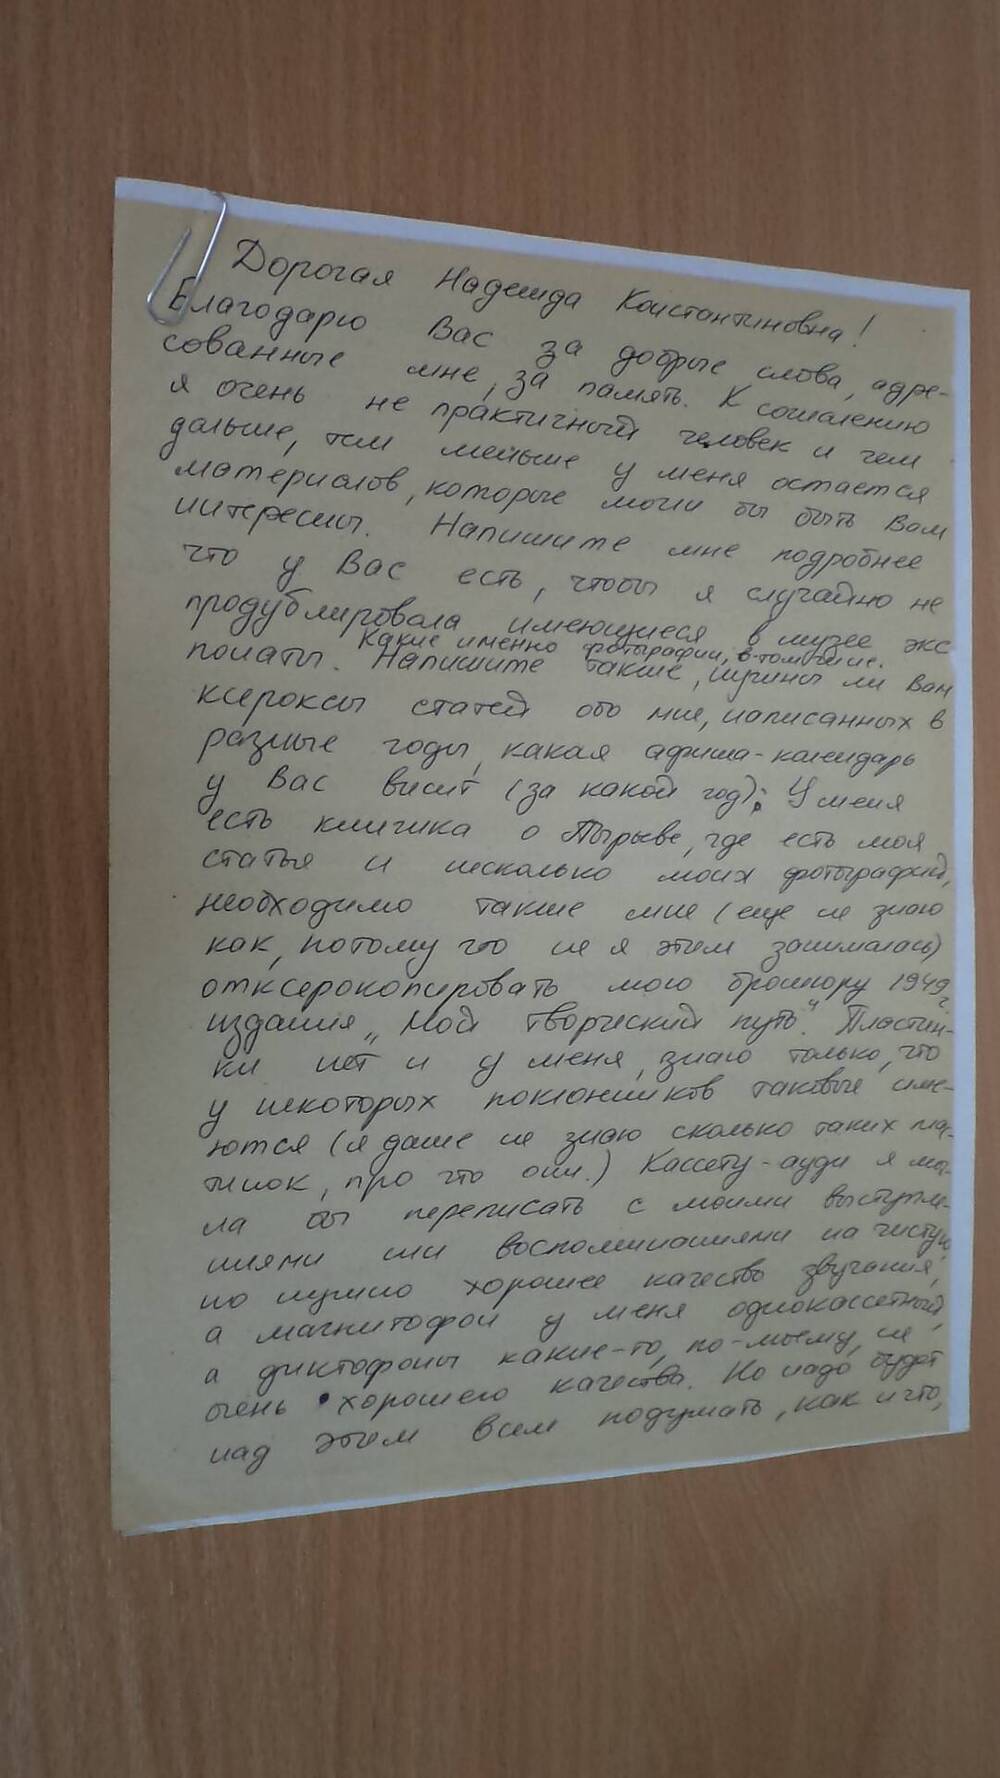 Дорогая Надежда Константиновна!
Благодарю Вас за добрые слова, адре-
сованные мне, за память. К сожалению
я очень не практичный человек и чем
дальше, тем меньше у меня остается
материалов, которые могли бы быть Вам
интересны. Напишите мне подробнее
что у Вас есть, чтобы я случайно не
продублировала имеющиеся в музее экс
Какие именно фотографии, в том числе.
понаты. Напишите также, нужны ли Вам
ксероксы статей обо мне, написанных в
разные годы, какая афиша-календарь
у Вас висит (за какой год); У меня
есть книжка о Пырьеве, где есть моя
статья и несколько моих фотографий,
необходимо также мне (еще не знаю
как, потому что не я этим занималась)
отксерокопировать мою брошюру 1949 г.
издания „Мой творческий путь". Пластин-
ки нет и у меня, знаю только, что
у некоторых поклонников таковые име-
ются (я даже не знаю сколько таких плас-
тинок, про что они.) Кассету-ауди я мог-
ла бы переписать с моими выступле-
ниями или воспоминаниями на чистую,
но нужно хорошее качество звучания,
а магнитофон у меня однокассетный,
а диктофоны какие-то, по-моему, не
очень хорошего качества. Но надо будет
над этим всем подумать, как и что,